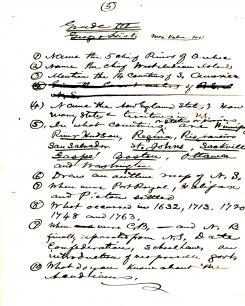 (5)
Grade VII
① Name the 5 chief Rivers of Quebec
② Name the chief West Indian Islands
③ Mention the 14 Countries of S. America
④ Name the New England States & how
many States & Territories U.S.
⑤ In what Countries, or
River Hudson, Regina, Rio Janeiro
San Salvador St. Johns, Sackville
Gaspe, Boston, Ottawa
and Washington
⑥ Draw an outline map of N.S.
⑦ When was Port Royal, Halifax
and Pictou settled
⑧ What occurred in 1632, 1713,
1748 and 1763,
⑨ When was C.B., and N.B
finally from N.S. Date
Confederation, School law, and
introduction of responsible govt.
⑩ What do you know about the
Acadians,